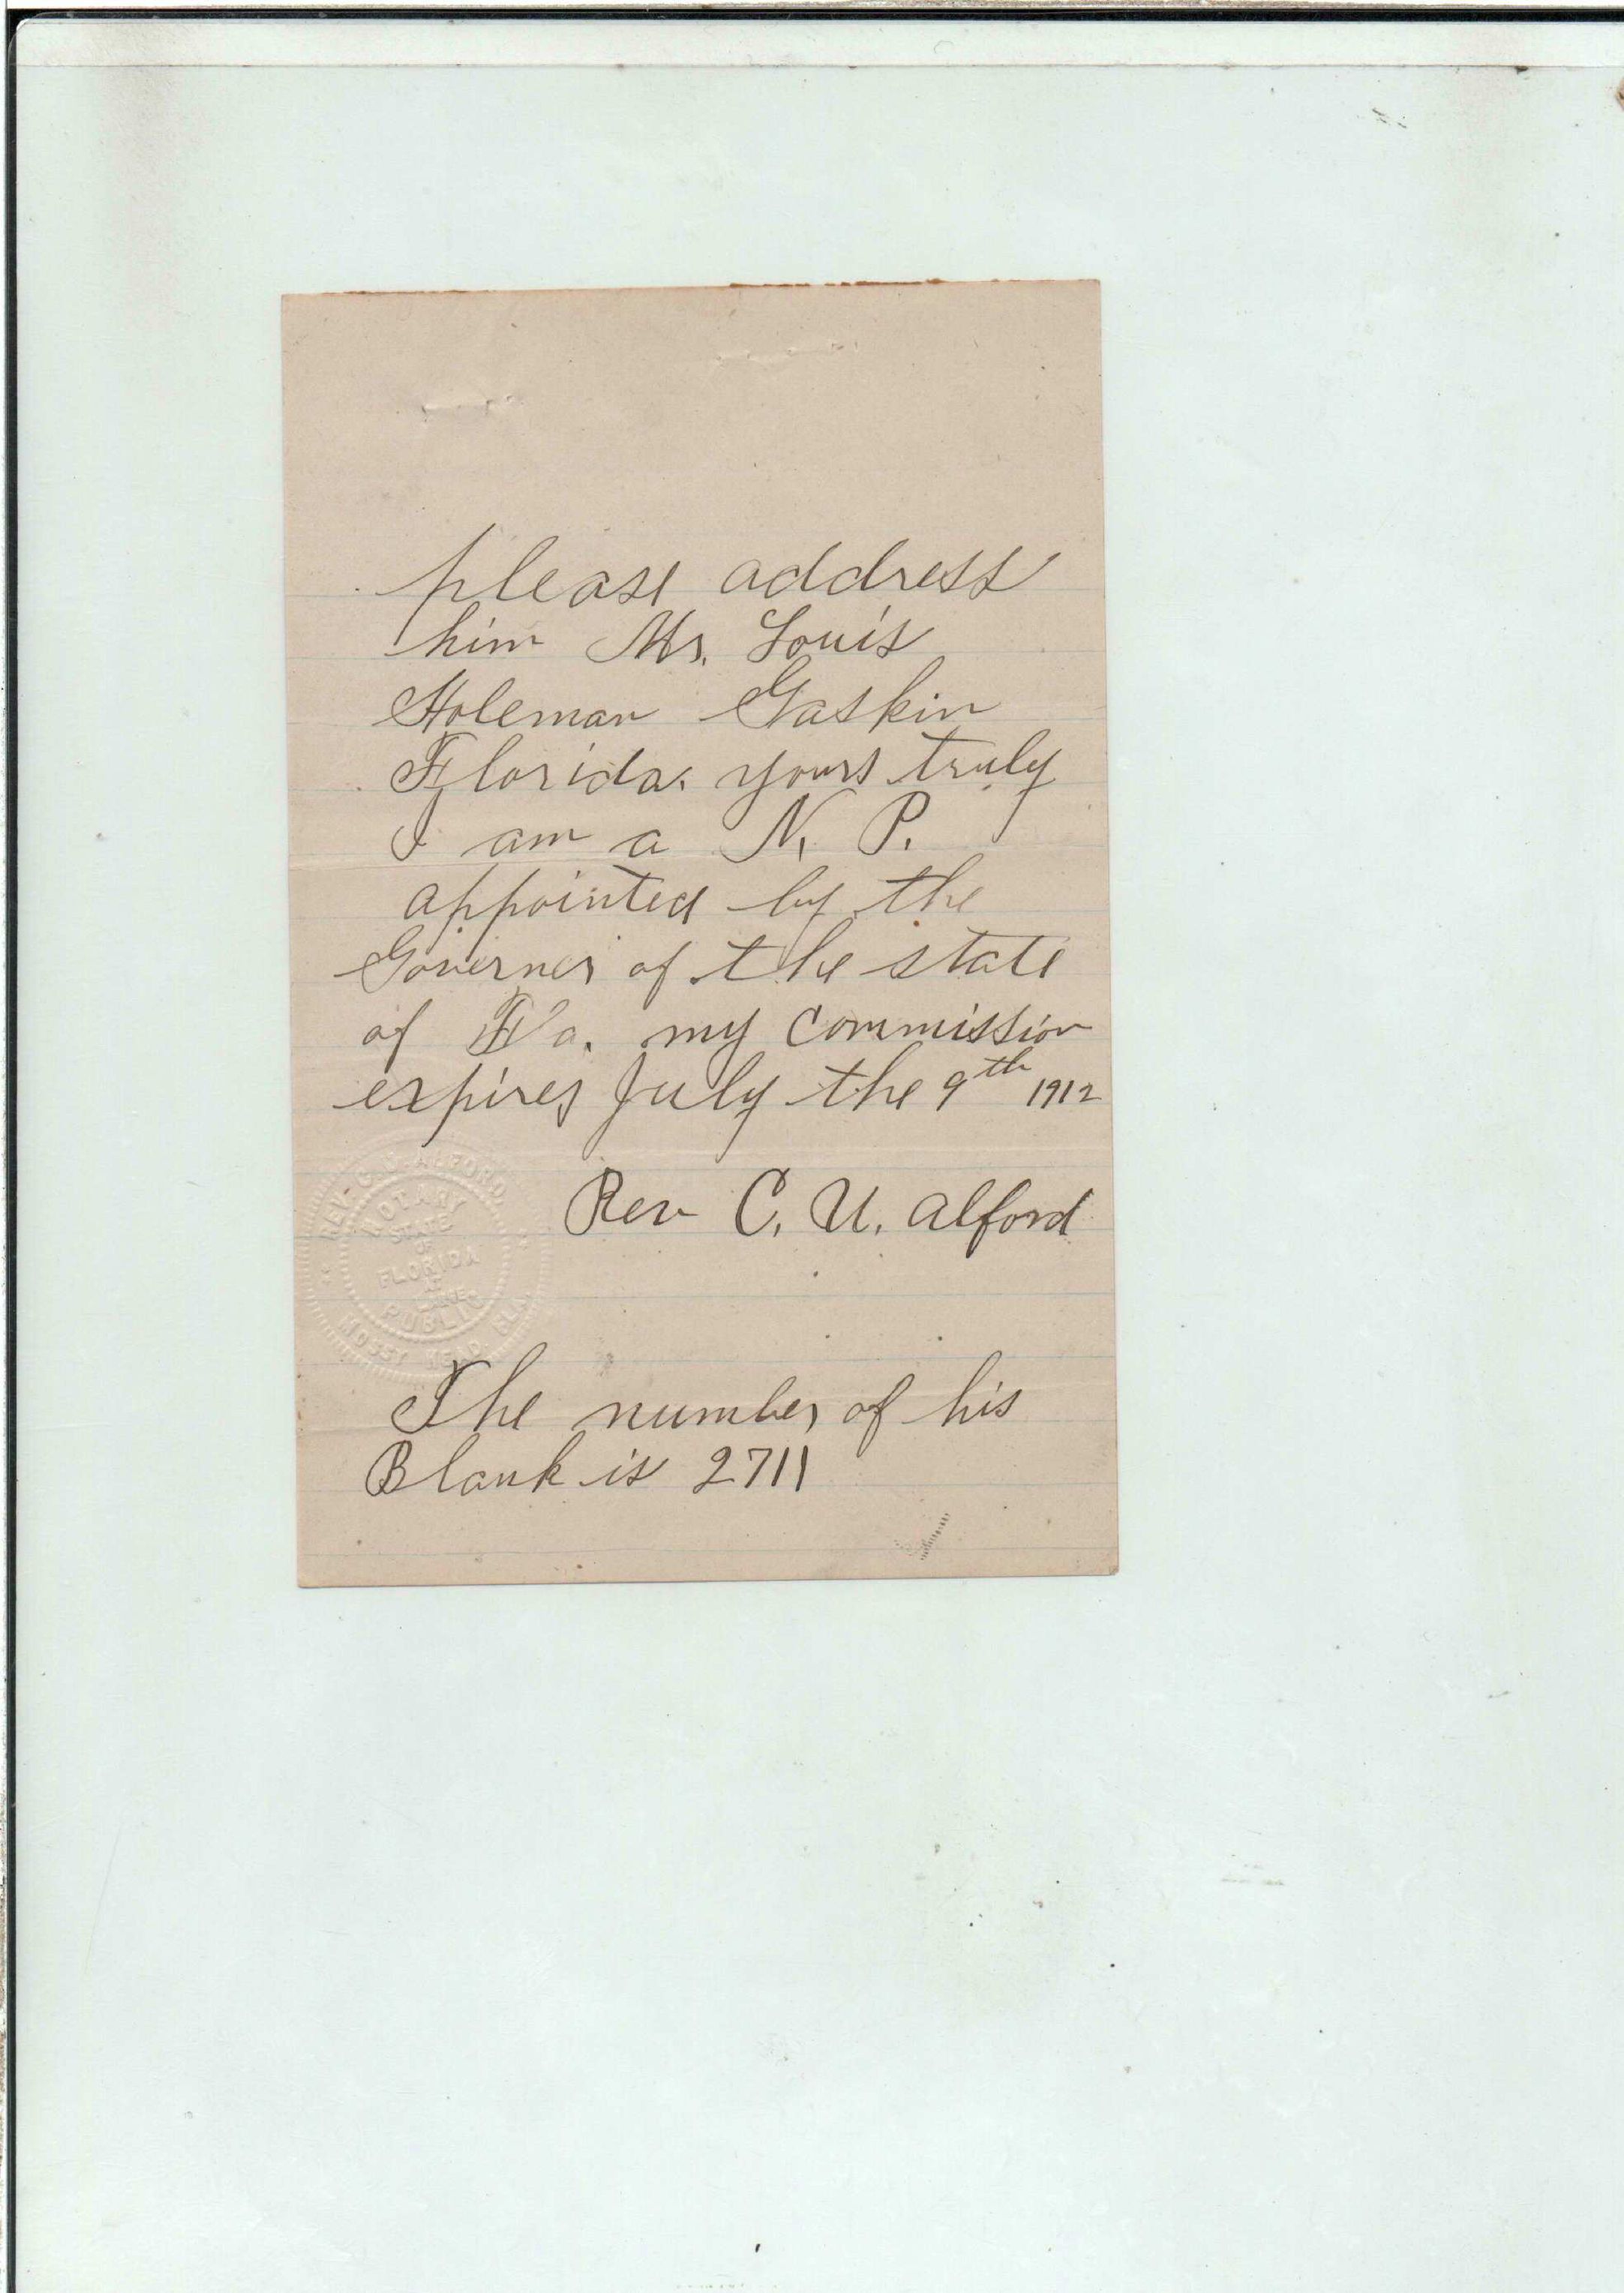 please address
him Mr. Louis
Holeman Gaskin
Florida. yours truly
I am a N. P.
appointed by the
Governer of the state
of Fla. my commission
expires July the 9th 1912
Rev C. U. Alford
REV. C. U. ALFORD
NOTARY
STATE
OF
FLORIDA
AT
LARGE
PUBLIC
MOSSY HEAD FLA.
The number of his
Blank is 2711